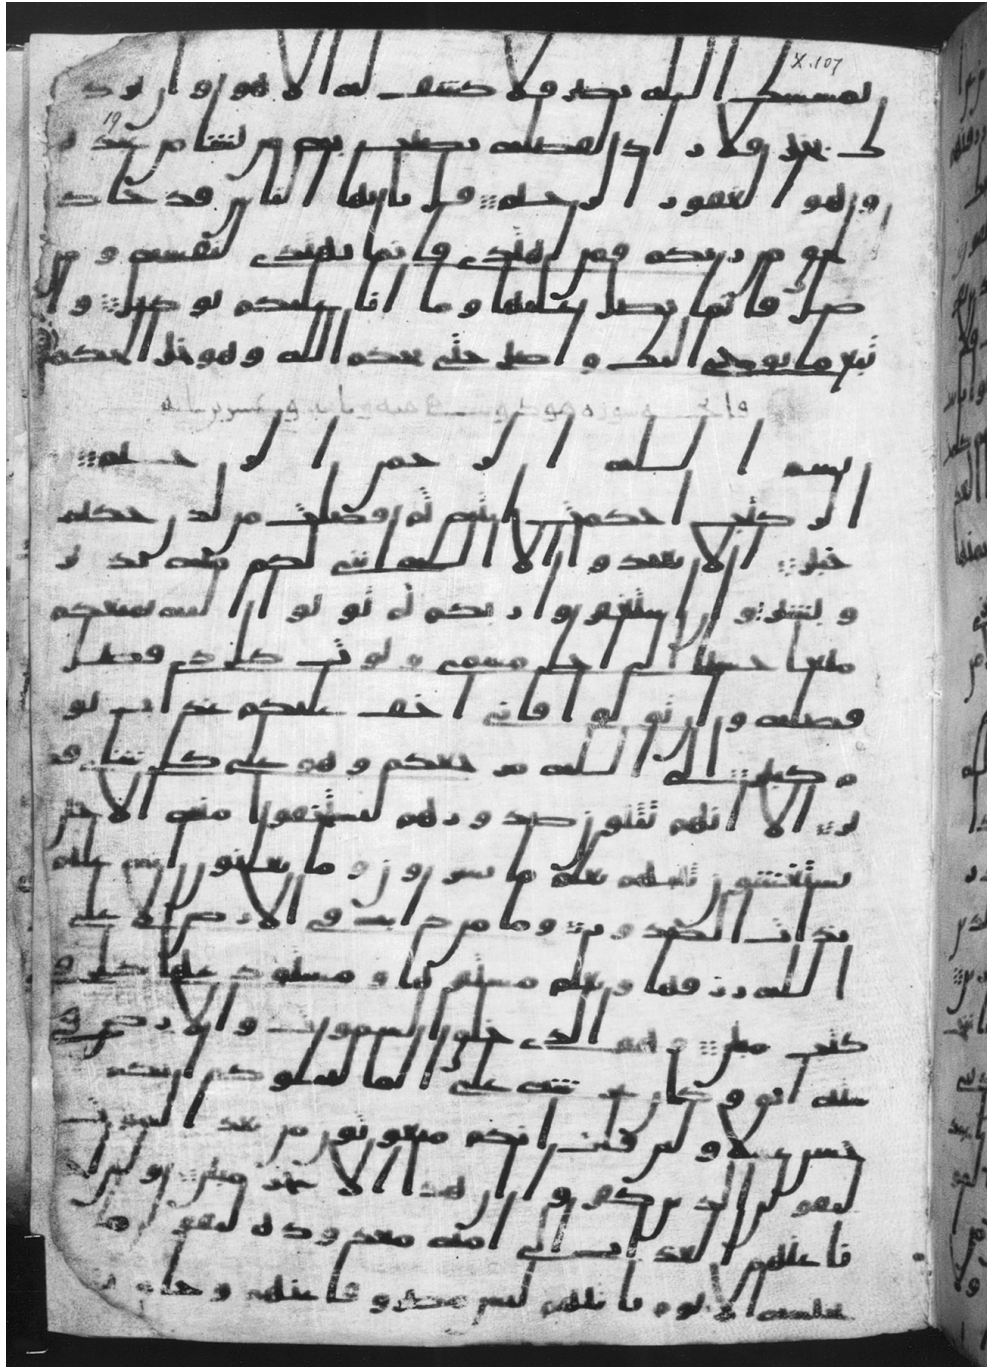 يمسسك الله بضر فلا كشف له الا هو و ان يرد
ك بخير فلا راد لفضله يصيب به من يشا من عبده
و هو الغفور الرحيم قل يايها الناس قد جاكم
الحق من ربكم فمن اهتدى فانما يهتدي لنفسه و من
ضل فانما يضل عليها و ما انا عليكم بوكيل و ا
تبع ما يوحى اليك و اصبر حتى يحكم الله و هو خير الحكمين
سورة هود
بسم الله الرحمن الرحيم
الر كتب احكمت ايته ثم فصلت من لدن حكيم
خبير الا تعبدوا الا الله انني لكم منه نذير
و بشير و ان استغفروا ربكم ثم توبوا اليه يمتعكم
متعا حسنا الى اجل مسمى و يوت كل ذي فضل
فضله و ان تولوا فاني اخف عليكم عذاب يو
م كبير الى الله مرجعكم و هو على كل شي قد
ير الا انهم يثنون صدورهم ليستخفوا منه الا حين
يستغشون ثيبهم يعلم ما يسرون و ما يعلنون انه عليم
بذات الصدور و ما من دابه في الارض الا على
الله رزقها و يعلم مستقرها و مستودعها كل في
كتب مبين و هو الذي خلق السموت و الارض في
سته ايم و كان عرشه على الما ليبلوكم ايكم
احسن عملا و لئن قلت انكم مبعوثون من بعد الموت
ليقولن الذين كفروا ان هذا الا سحر مبين و لئن اخر
نا عنهم العذب الى امه معدوده ليقولن ما
يحبسه الا يوم ياتيهم ليس مصروفا عنهم و حاق